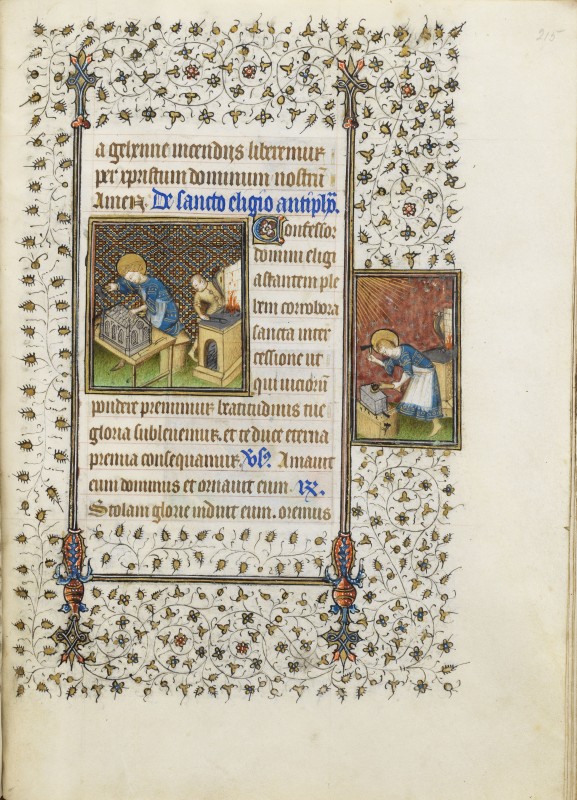 215
a gehenne incendijs liberemur
per xpristum dominum nostrū
Amen. De sancto eligio antiphō.
Confessor
domini eligi
astantem ple
bem corrobora
sancta inter
cessione ut
qui uiciorū
pondere premimur beatitudinis tue
gloria subleuemur. et te duce eterna
premia consequamur. Vs̄. Amauit
eum dominus et ornauit eum. R̄.
Stolam glorie induit eum. oremus